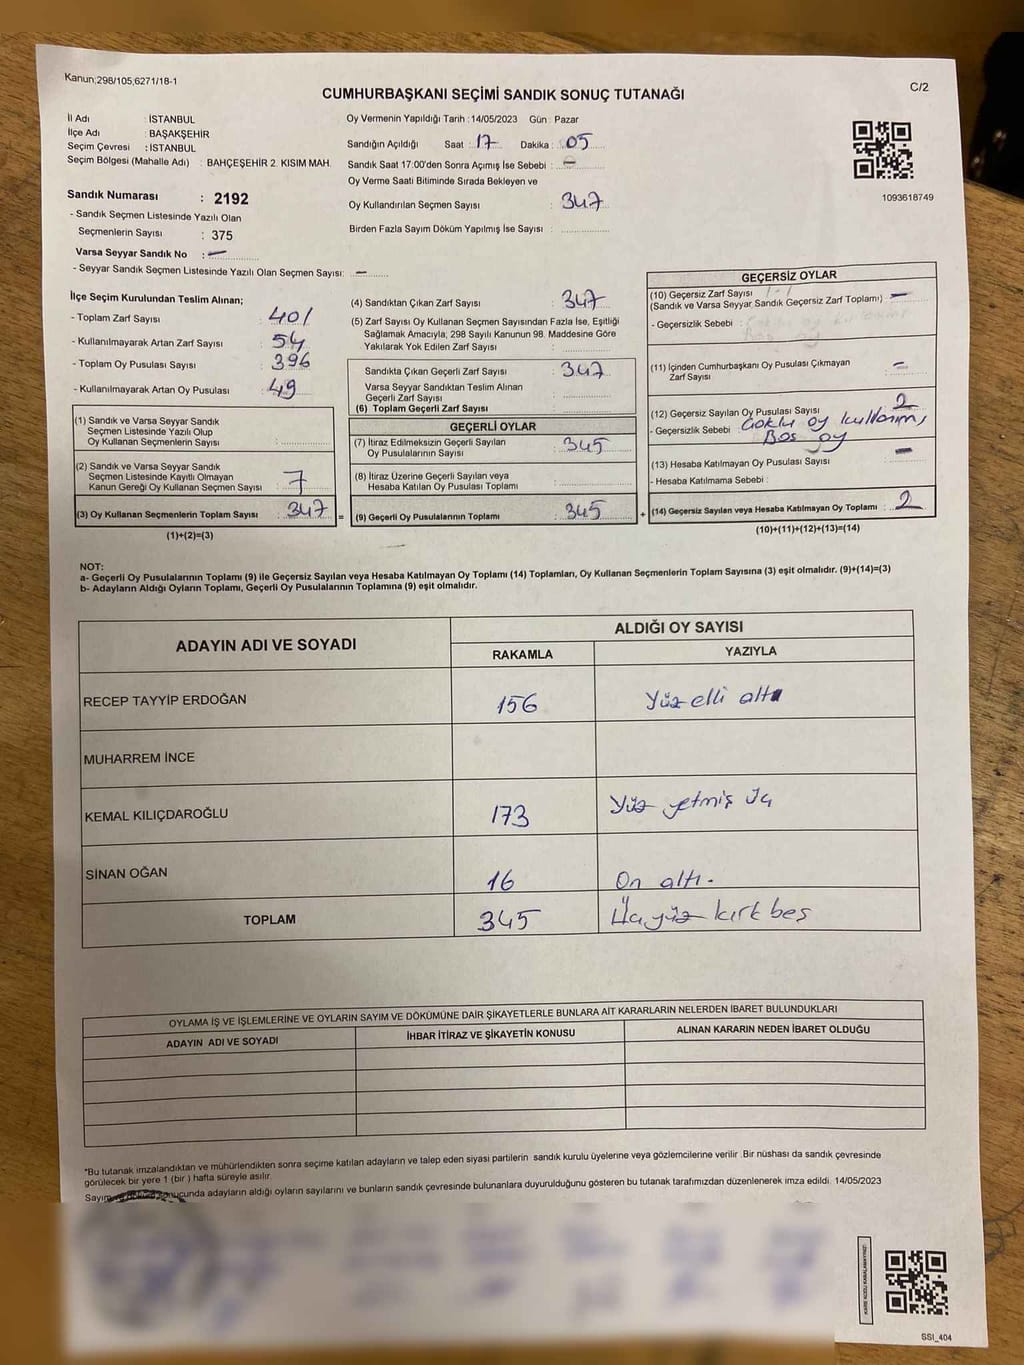 Kanun;298/105,6271/18-1
C/2
CUMHURBAŞKANI SEÇİMİ SANDIK SONUÇ TUTANAĞI
İl Adı : İSTANBUL
İlçe Adı : BAŞAKŞEHİR
Seçim Çevresi : İSTANBUL
Seçim Bölgesi (Mahalle Adı) : BAHÇEŞEHİR 2. KISIM MAH.
Sandık Numarası : 2192
- Sandık Seçmen Listesinde Yazılı Olan
Seçmenlerin Sayısı : 375
Varsa Seyyar Sandık No : —
- Seyyar Sandık Seçmen Listesinde Yazılı Olan Seçmen Sayısı: —
Oy Vermenin Yapıldığı Tarih :14/05/2023 Gün : Pazar
Sandığın Açıldığı Saat : 17 Dakika : 05
Sandık Saat 17:00'den Sonra Açımış İse Sebebi : —
Oy Verme Saati Bitiminde Sırada Bekleyen ve
Oy Kullandırılan Seçmen Sayısı : 347
Birden Fazla Sayım Döküm Yapılmış İse Sayısı :
1093618749
İlçe Seçim Kurulundan Teslim Alınan;
- Toplam Zarf Sayısı : 401
- Kullanılmayarak Artan Zarf Sayısı : 54
- Toplam Oy Pusulası Sayısı : 396
- Kullanılmayarak Artan Oy Pusulası : 49
(1) Sandık ve Varsa Seyyar Sandık
Seçmen Listesinde Yazılı Olup
Oy Kullanan Seçmenlerin Sayısı :
(2) Sandık ve Varsa Seyyar Sandık
Seçmen Listesinde Kayıtlı Olmayan
Kanun Gereği Oy Kullanan Seçmen Sayısı : 7
(3) Oy Kullanan Seçmenlerin Toplam Sayısı : 347 =
(1)+(2)=(3)
(4) Sandıktan Çıkan Zarf Sayısı : 347
(5) Zarf Sayısı Oy Kullanan Seçmen Sayısından Fazla İse, Eşitliği
Sağlamak Amacıyla, 298 Sayılı Kanunun 98. Maddesine Göre
Yakılarak Yok Edilen Zarf Sayısı :
Sandıkta Çıkan Geçerli Zarf Sayısı : 347
Varsa Seyyar Sandıktan Teslim Alınan
Geçerli Zarf Sayısı :
(6) Toplam Geçerli Zarf Sayısı :
GEÇERLİ OYLAR
(7) İtiraz Edilmeksizin Geçerli Sayılan
Oy Pusulalarının Sayısı : 345
(8) İtiraz Üzerine Geçerli Sayılan veya
Hesaba Katılan Oy Pusulası Toplamı :
(9) Geçerli Oy Pusulalarının Toplamı : 345 +
GEÇERSİZ OYLAR
(10) Geçersiz Zarf Sayısı
(Sandık ve Varsa Seyyar Sandık Geçersiz Zarf Toplamı) : —
- Geçersizlik Sebebi :
(11) İçinden Cumhurbaşkanı Oy Pusulası Çıkmayan
Zarf Sayısı : —
(12) Geçersiz Sayılan Oy Pusulası Sayısı : 2
- Geçersizlik Sebebi : Çoklu oy kullanımı,
Boş oy
(13) Hesaba Katılmayan Oy Pusulası Sayısı : —
- Hesaba Katılmama Sebebi :
(14) Geçersiz Sayılan veya Hesaba Katılmayan Oy Toplamı : 2
(10)+(11)+(12)+(13)=(14)
NOT:
a- Geçerli Oy Pusulalarının Toplamı (9) ile Geçersiz Sayılan veya Hesaba Katılmayan Oy Toplamı (14) Toplamları, Oy Kullanan Seçmenlerin Toplam Sayısına (3) eşit olmalıdır. (9)+(14)=(3)
b- Adayların Aldığı Oyların Toplamı, Geçerli Oy Pusulalarının Toplamına (9) eşit olmalıdır.
ADAYIN ADI VE SOYADI
ALDIĞI OY SAYISI
RAKAMLA YAZIYLA
RECEP TAYYİP ERDOĞAN 156 Yüz elli altı
MUHARREM İNCE
KEMAL KILIÇDAROĞLU 173 Yüz yetmiş üç
SİNAN OĞAN 16 On altı.
TOPLAM 345 Üçyüz kırk beş
OYLAMA İŞ VE İŞLEMLERİNE VE OYLARIN SAYIM VE DÖKÜMÜNE DAİR ŞİKAYETLERLE BUNLARA AİT KARARLARIN NELERDEN İBARET BULUNDUKLARI
ADAYIN ADI VE SOYADI İHBAR İTİRAZ VE ŞİKAYETİN KONUSU ALINAN KARARIN NEDEN İBARET OLDUĞU
*Bu tutanak imzalandıktan ve mühürlendikten sonra seçime katılan adayların ve talep eden siyasi partilerin sandık kurulu üyelerine veya gözlemcilerine verilir .Bir nüshası da sandık çevresinde
görülecek bir yere 1 (bir ) hafta süreyle asılır.
Sayım sonucunda adayların aldığı oyların sayılarını ve bunların sandık çevresinde bulunanlara duyurulduğunu gösteren bu tutanak tarafımızdan düzenlenerek imza edildi. 14/05/2023
SSI_404